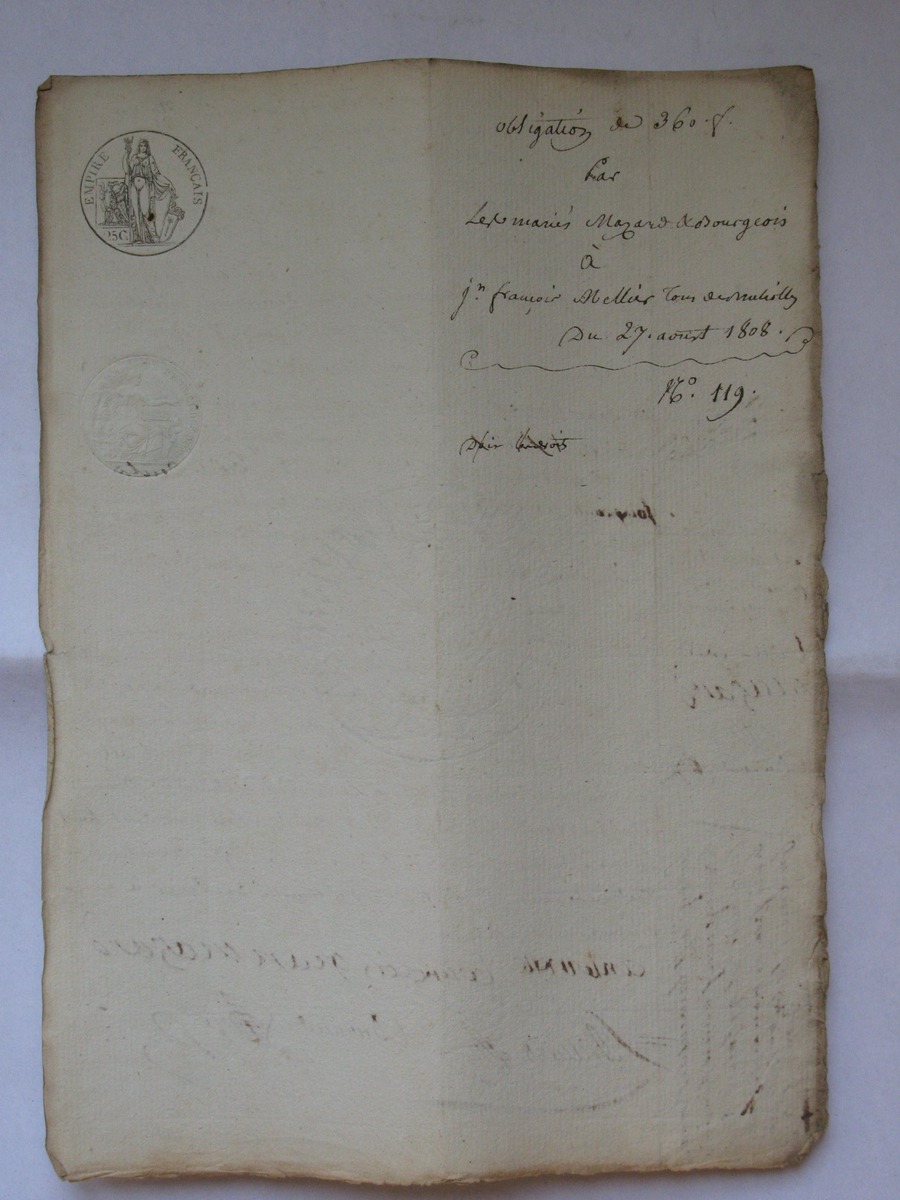 EMPIRE FRANÇAIS
obligation de 360. f.
Par
Les mariés Mazard & Bourgeois
à
jn. françois Mellier tous de
Du 27. aoust 1808.
No. 119.